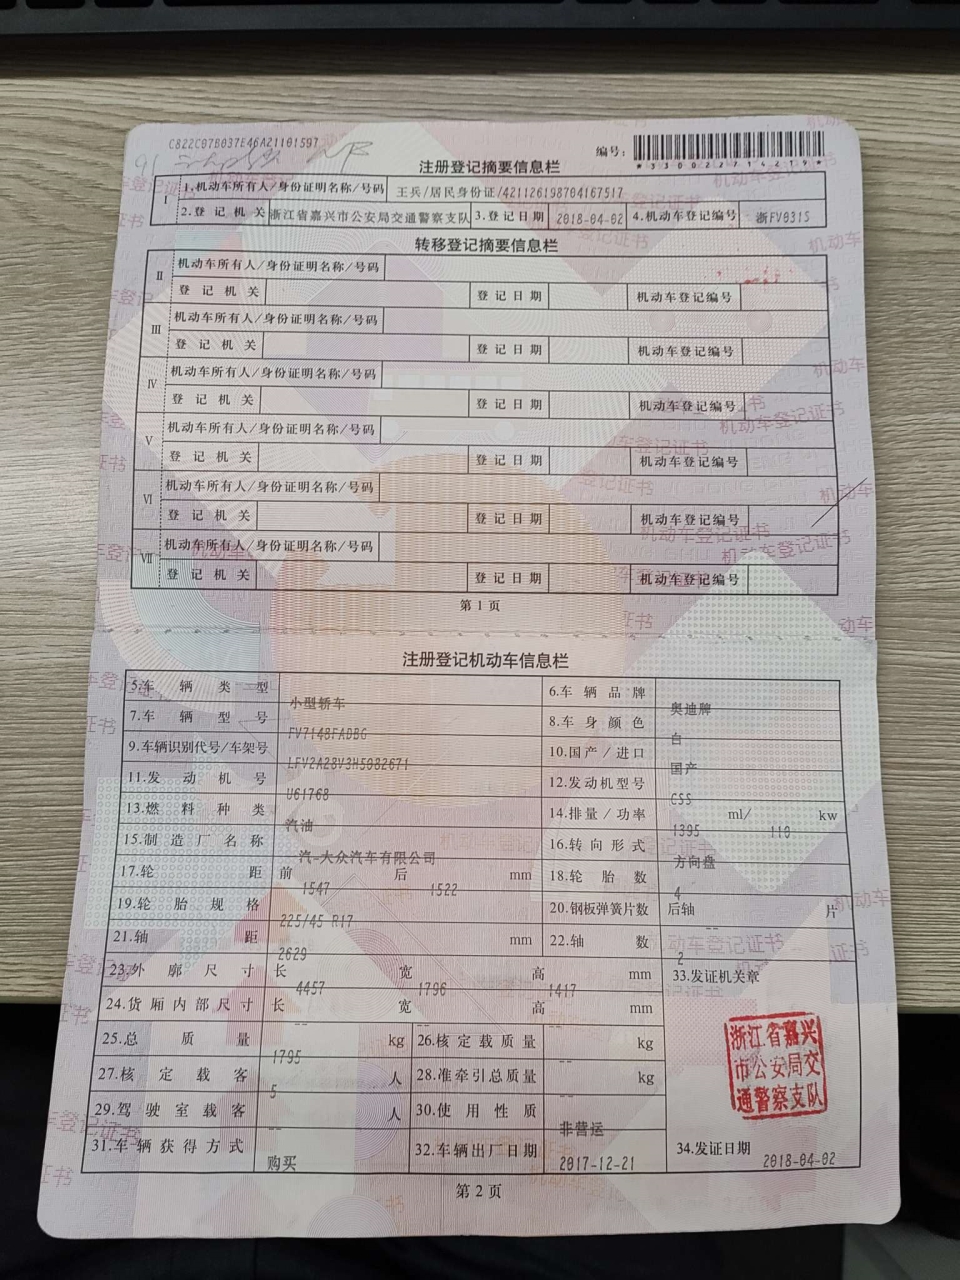 C822C07B037E46A21101597
编号:
*330022714219*
注册登记摘要信息栏
I 1.机动车所有人/身份证明名称/号码 王兵/居民身份证/421126198704167517
2.登记机关 浙江省嘉兴市公安局交通警察支队 3.登记日期 2018-04-02 4.机动车登记编号 浙FV031S
转移登记摘要信息栏
II 机动车所有人/身份证明名称/号码
登记机关 登记日期 机动车登记编号
III 机动车所有人/身份证明名称/号码
登记机关 登记日期 机动车登记编号
IV 机动车所有人/身份证明名称/号码
登记机关 登记日期 机动车登记编号
V 机动车所有人/身份证明名称/号码
登记机关 登记日期 机动车登记编号
VI 机动车所有人/身份证明名称/号码
登记机关 登记日期 机动车登记编号
VII 机动车所有人/身份证明名称/号码
登记机关 登记日期 机动车登记编号
第1页
注册登记机动车信息栏
5.车辆类型 小型轿车 6.车辆品牌 奥迪牌
7.车辆型号 FV7148FADBG 8.车身颜色 白
9.车辆识别代号/车架号 LFV2A28V3H5082671 10.国产/进口 国产
11.发动机号 U61768 12.发动机型号 CSS
13.燃料种类 汽油 14.排量/功率 1395 ml/ 110 kw
15.制造厂名称 一汽-大众汽车有限公司 16.转向形式 方向盘
17.轮距 前 1547 后 1522 mm 18.轮胎数 4
19.轮胎规格 225/45 R17 20.钢板弹簧片数 后轴 -- 片
21.轴距 2629 mm 22.轴数 2
23.外廓尺寸 长 4457 宽 1796 高 1417 mm 33.发证机关章
24.货厢内部尺寸 长 -- 宽 -- 高 -- mm
25.总质量 1795 kg 26.核定载质量 -- kg
27.核定载客 5 人 28.准牵引总质量 -- kg
29.驾驶室载客 -- 人 30.使用性质 非营运
31.车辆获得方式 购买 32.车辆出厂日期 2017-12-21 34.发证日期 2018-04-02
浙江省嘉兴
市公安局交
通警察支队
第2页